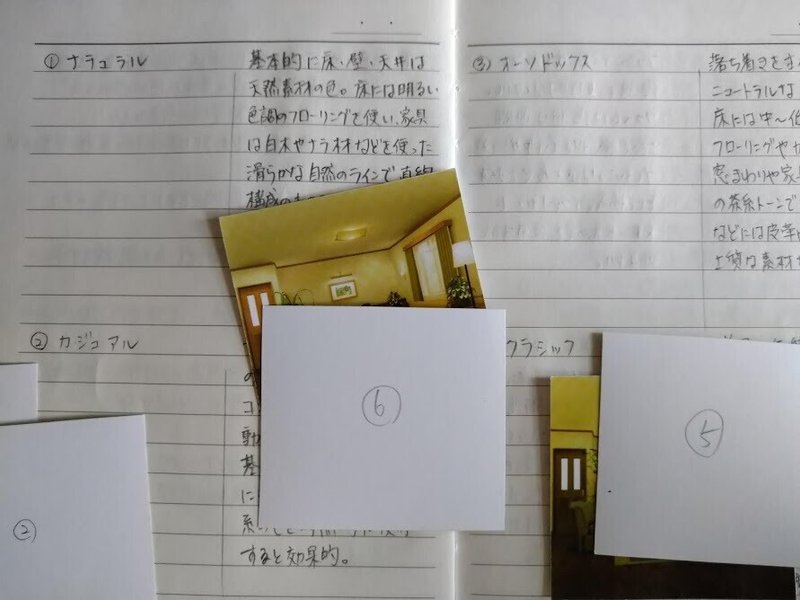 ① ナチュラル
基本的に床・壁・天井は
天然素材の色。床には明るい
色調のフローリングを使い、家具
は白木やナラ材などを使った
滑らかな自然のラインで直線
構成の
② カジュアル
の
コ
動
基
に
系
すると効果的。
③ オーソドックス
落ち着きをも
ニュートラルな
床には中〜低
フローリングやカ
窓まわりや家具
の茶系トーンで
などには皮革
上質な素材
クラシック
⑥
⑤
②